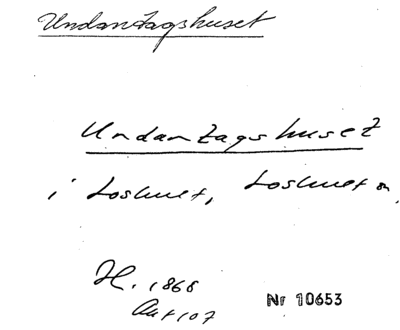 Undantagshuset
Undantagshuset
i Loshult, Loshult sn,
H. 1868
Akt 107
Nr 10653